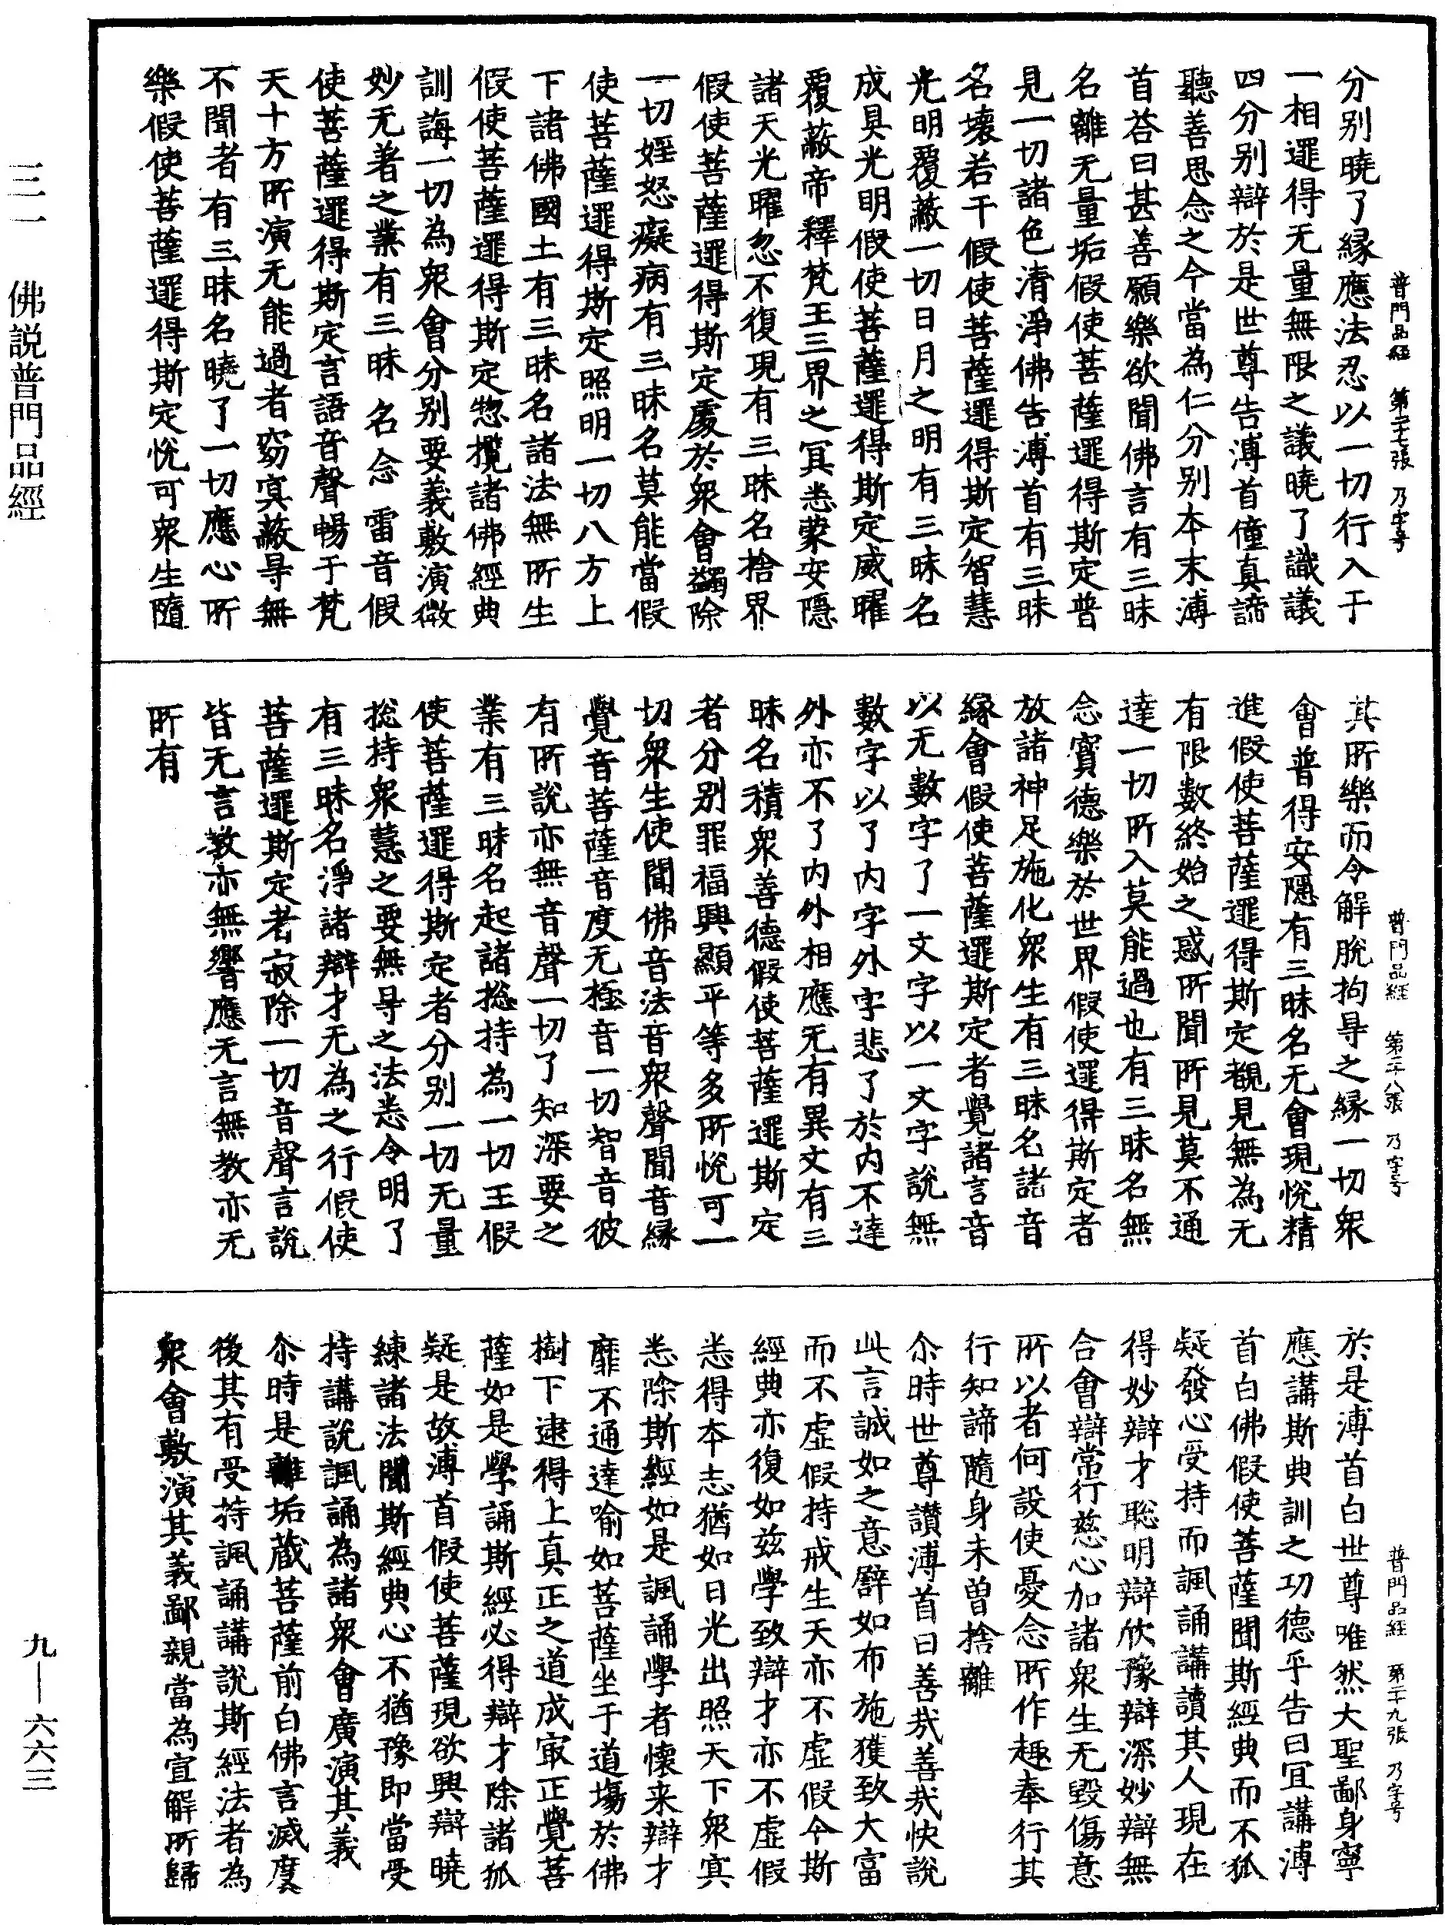 普門品經　第二十七張　乃字号
分別曉了縁應法忍以一切行入于
一相邏得无量無限之議曉了識議
四分別辯於是世尊告溥首僮真諦
聽善思念之今當為仁分別本末溥
首荅曰甚善願樂欲聞佛言有三昧
名離无量垢假使菩薩邏得斯定普
見一切諸色清淨佛告溥首有三昧
名壞若干假使菩薩邏得斯定智慧
光明覆蔽一切日月之明有三昧名
成具光明假使菩薩邏得斯定威曜
覆蔽帝釋梵王三界之冥悉蒙安隱
諸天光曜忽不復現有三昧名捨界
假使菩薩邏得斯定處於衆會蠲除
一切婬怒癡病有三昧名莫能當假
使菩薩邏得斯定照明一切八方上
下諸佛國土有三昧名諸法無所生
假使菩薩邏得斯定惣攬諸佛經典
訓誨一切為衆會分別要義敷演微
妙无著之業有三昧名念雷音假
使菩薩邏得斯定言語音聲暢于梵
天十方所演无能過者窈冥蔽㝵無
不聞者有三昧名曉了一切應心所
樂假使菩薩邏得斯定悅可衆生隨
普門品經　第二十八張　乃字号
其所樂而令解脫拘㝵之縁一切衆
會普得安隱有三昧名无會現悅精
進假使菩薩邏得斯定覩見無為无
有限數終始之惑所聞所見莫不通
達一切所入莫能過也有三昧名無
念寳德樂於世界假使邏得斯定者
放諸神足施化衆生有三昧名諸音
縁會假使菩薩邏斯定者覺諸言音
以无數字了一文字以一文字說無
數字以了内字外字悲了於内不達
外亦不了内外相應无有異文有三
昧名積衆善德假使菩薩邏斯定
者分別罪福興顯平等多所悅可一
切衆生使聞佛音法音衆聲聞音縁
覺音菩薩音度无極音一切智音彼
有所說亦無音聲一切了知深要之
業有三昧名起諸捴持為一切王假
使菩薩邏得斯定者分別一切无量
捴持衆慧之要無㝵之法悉令明了
有三昧名淨諸辯才无為之行假使
菩薩邏斯定者寂除一切音聲言說
皆无言教亦無響應无言無教亦无
所有
普門品經　第二十九張　乃字号
於是溥首白世尊唯然大聖鄙身寧
應講斯典訓之功德乎告曰宜講溥
首白佛假使菩薩聞斯經典而不狐
疑發心受持而諷誦講讀其人現在
得妙辯才聡明辯欣豫辯深妙辯無
合會辯常行慈心加諸衆生无毀傷意
所以者何設使憂念所作趣奉行其
行知諦隨身未曾捨離
尒時世尊讃溥首曰善㢤善㢤快說
此言誠如之意譬如布施獲致大富
而不虛假持戒生天亦不虛假今斯
經典亦復如茲學致辯才亦不虛假
悉得本志猶如日光出照天下衆冥
悉除斯經如是諷誦學者懷来辯才
靡不通達喻如菩薩坐于道場於佛
樹下逮得上真正之道成㝡正覺菩
薩如是學誦斯經必得辯才除諸狐
疑是故溥首假使菩薩現欲興辯曉
練諸法聞斯經典心不猶豫即當受
持講說諷誦為諸衆會廣演其義
尒時是離垢蔵菩薩前白佛言滅度
後其有受持諷誦講說斯經法者為
衆會敷演其義鄙親當為宣解所歸
三一　佛説普門品經
九—六六三